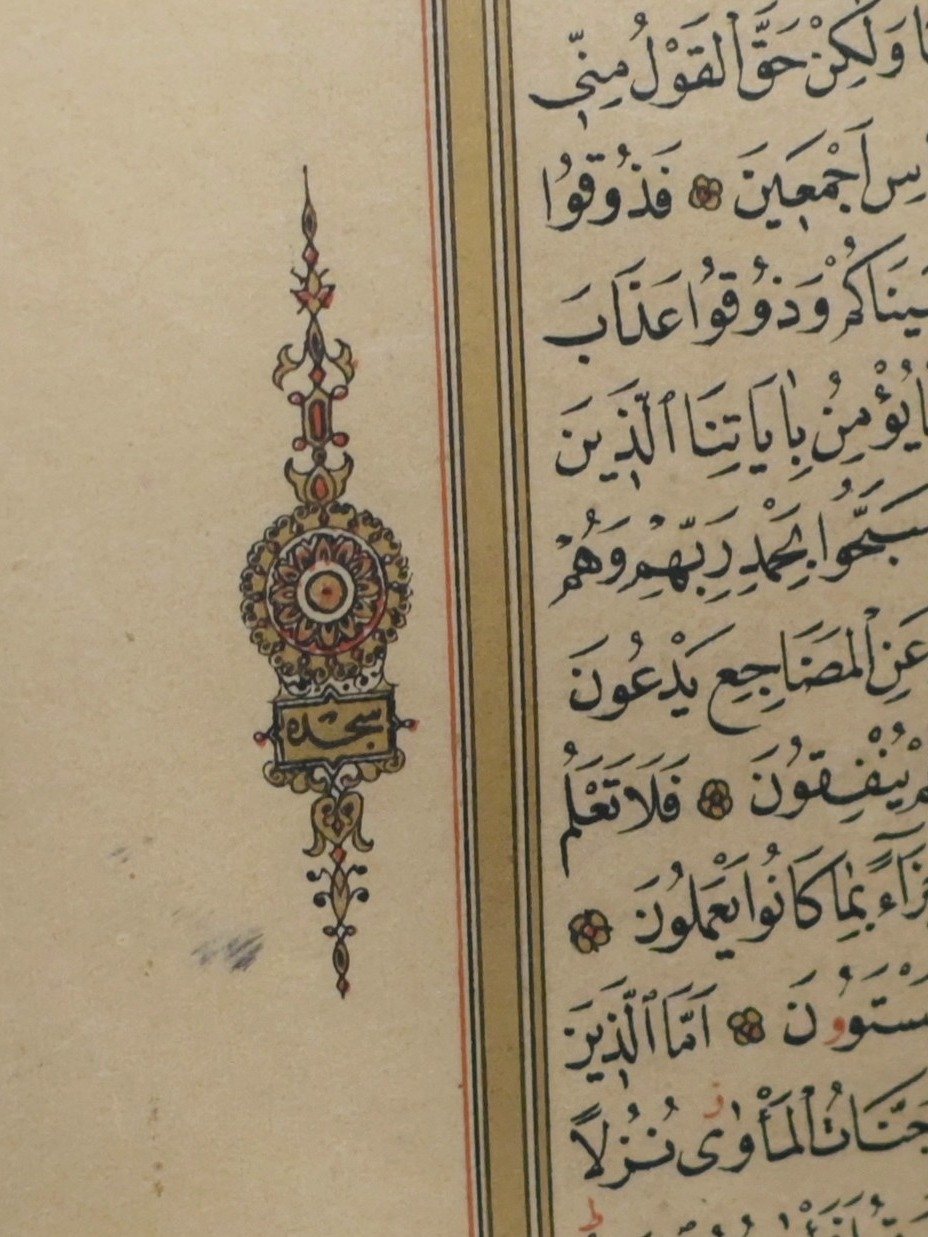 وَلَكِنْ حَقَّ الْقَوْلُ مِنِّي
اَجْمَعِينَ فَذُوقُوا
وَذُوقُوا عَذَابَ
يُؤْمِنُ بِاٰيَاتِنَا الَّذِينَ
سَبَّحُوا بِحَمْدِ رَبِّهِمْ وَهُمْ
عَنِ الْمَضَاجِعِ يَدْعُونَ
يُنْفِقُونَ فَلَا تَعْلَمُ
بِمَا كَانُوا يَعْمَلُونَ
اَمَّا الَّذِينَ
جَنَّاتُ الْمَأْوٰى نُزُلًا
سجده